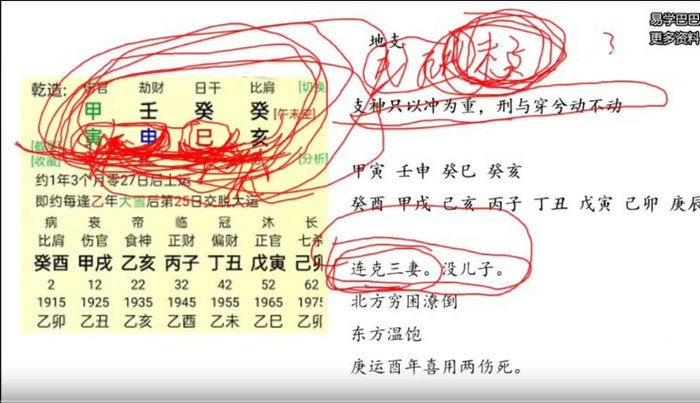 易学巴巴
更多资料
地支
乾造: 伤官 劫财 日干 比肩 [切换]
甲 壬 癸 癸 [午未空]
寅 申 巳 亥
[收藏] [分析]
约1年3个月零27日后上运
即约每逢乙年大雪后第25日交脱大运
病 衰 帝 临 冠 沐 长
比肩 伤官 食神 正财 偏财 正官 七杀
癸酉 甲戌 乙亥 丙子 丁丑 戊寅 己卯
2 12 22 32 42 52 62
1915 1925 1935 1945 1955 1965 1975
乙卯 乙丑 乙亥 乙酉 乙未 乙巳 乙卯
支神只以冲为重，刑与穿兮动不动
甲寅 壬申 癸巳 癸亥
癸酉 甲戌 乙亥 丙子 丁丑 戊寅 己卯 庚辰
连克三妻。没儿子。
北方穷困潦倒
东方温饱
庚运酉年喜用两伤死。